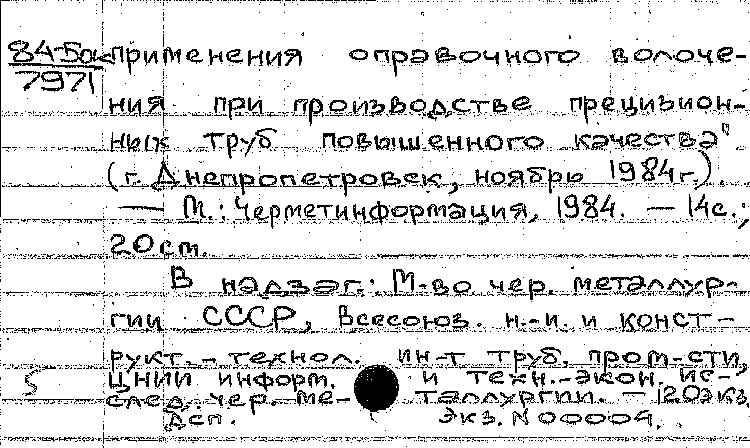 84-5ак применения оправочного волоче-
7971
ния при производстве прецизион-
ных труб повышенного качества"
(г. Днепропетровск, ноябрь 1984г.).
— М.: Черметинформация, 1984. — 14с.;
20 см.
В надзаг.: М-во чер. металлур-
гии СССР, Всесоюз. н.-и. и конст-
рукт.-технол. ин-т труб. пром-сти,
5 ЦНИИ информ. и техн.-экон. ис-
след. чер. ме- таллургии. — 120экз.
Дсп. Экз. N 00004.